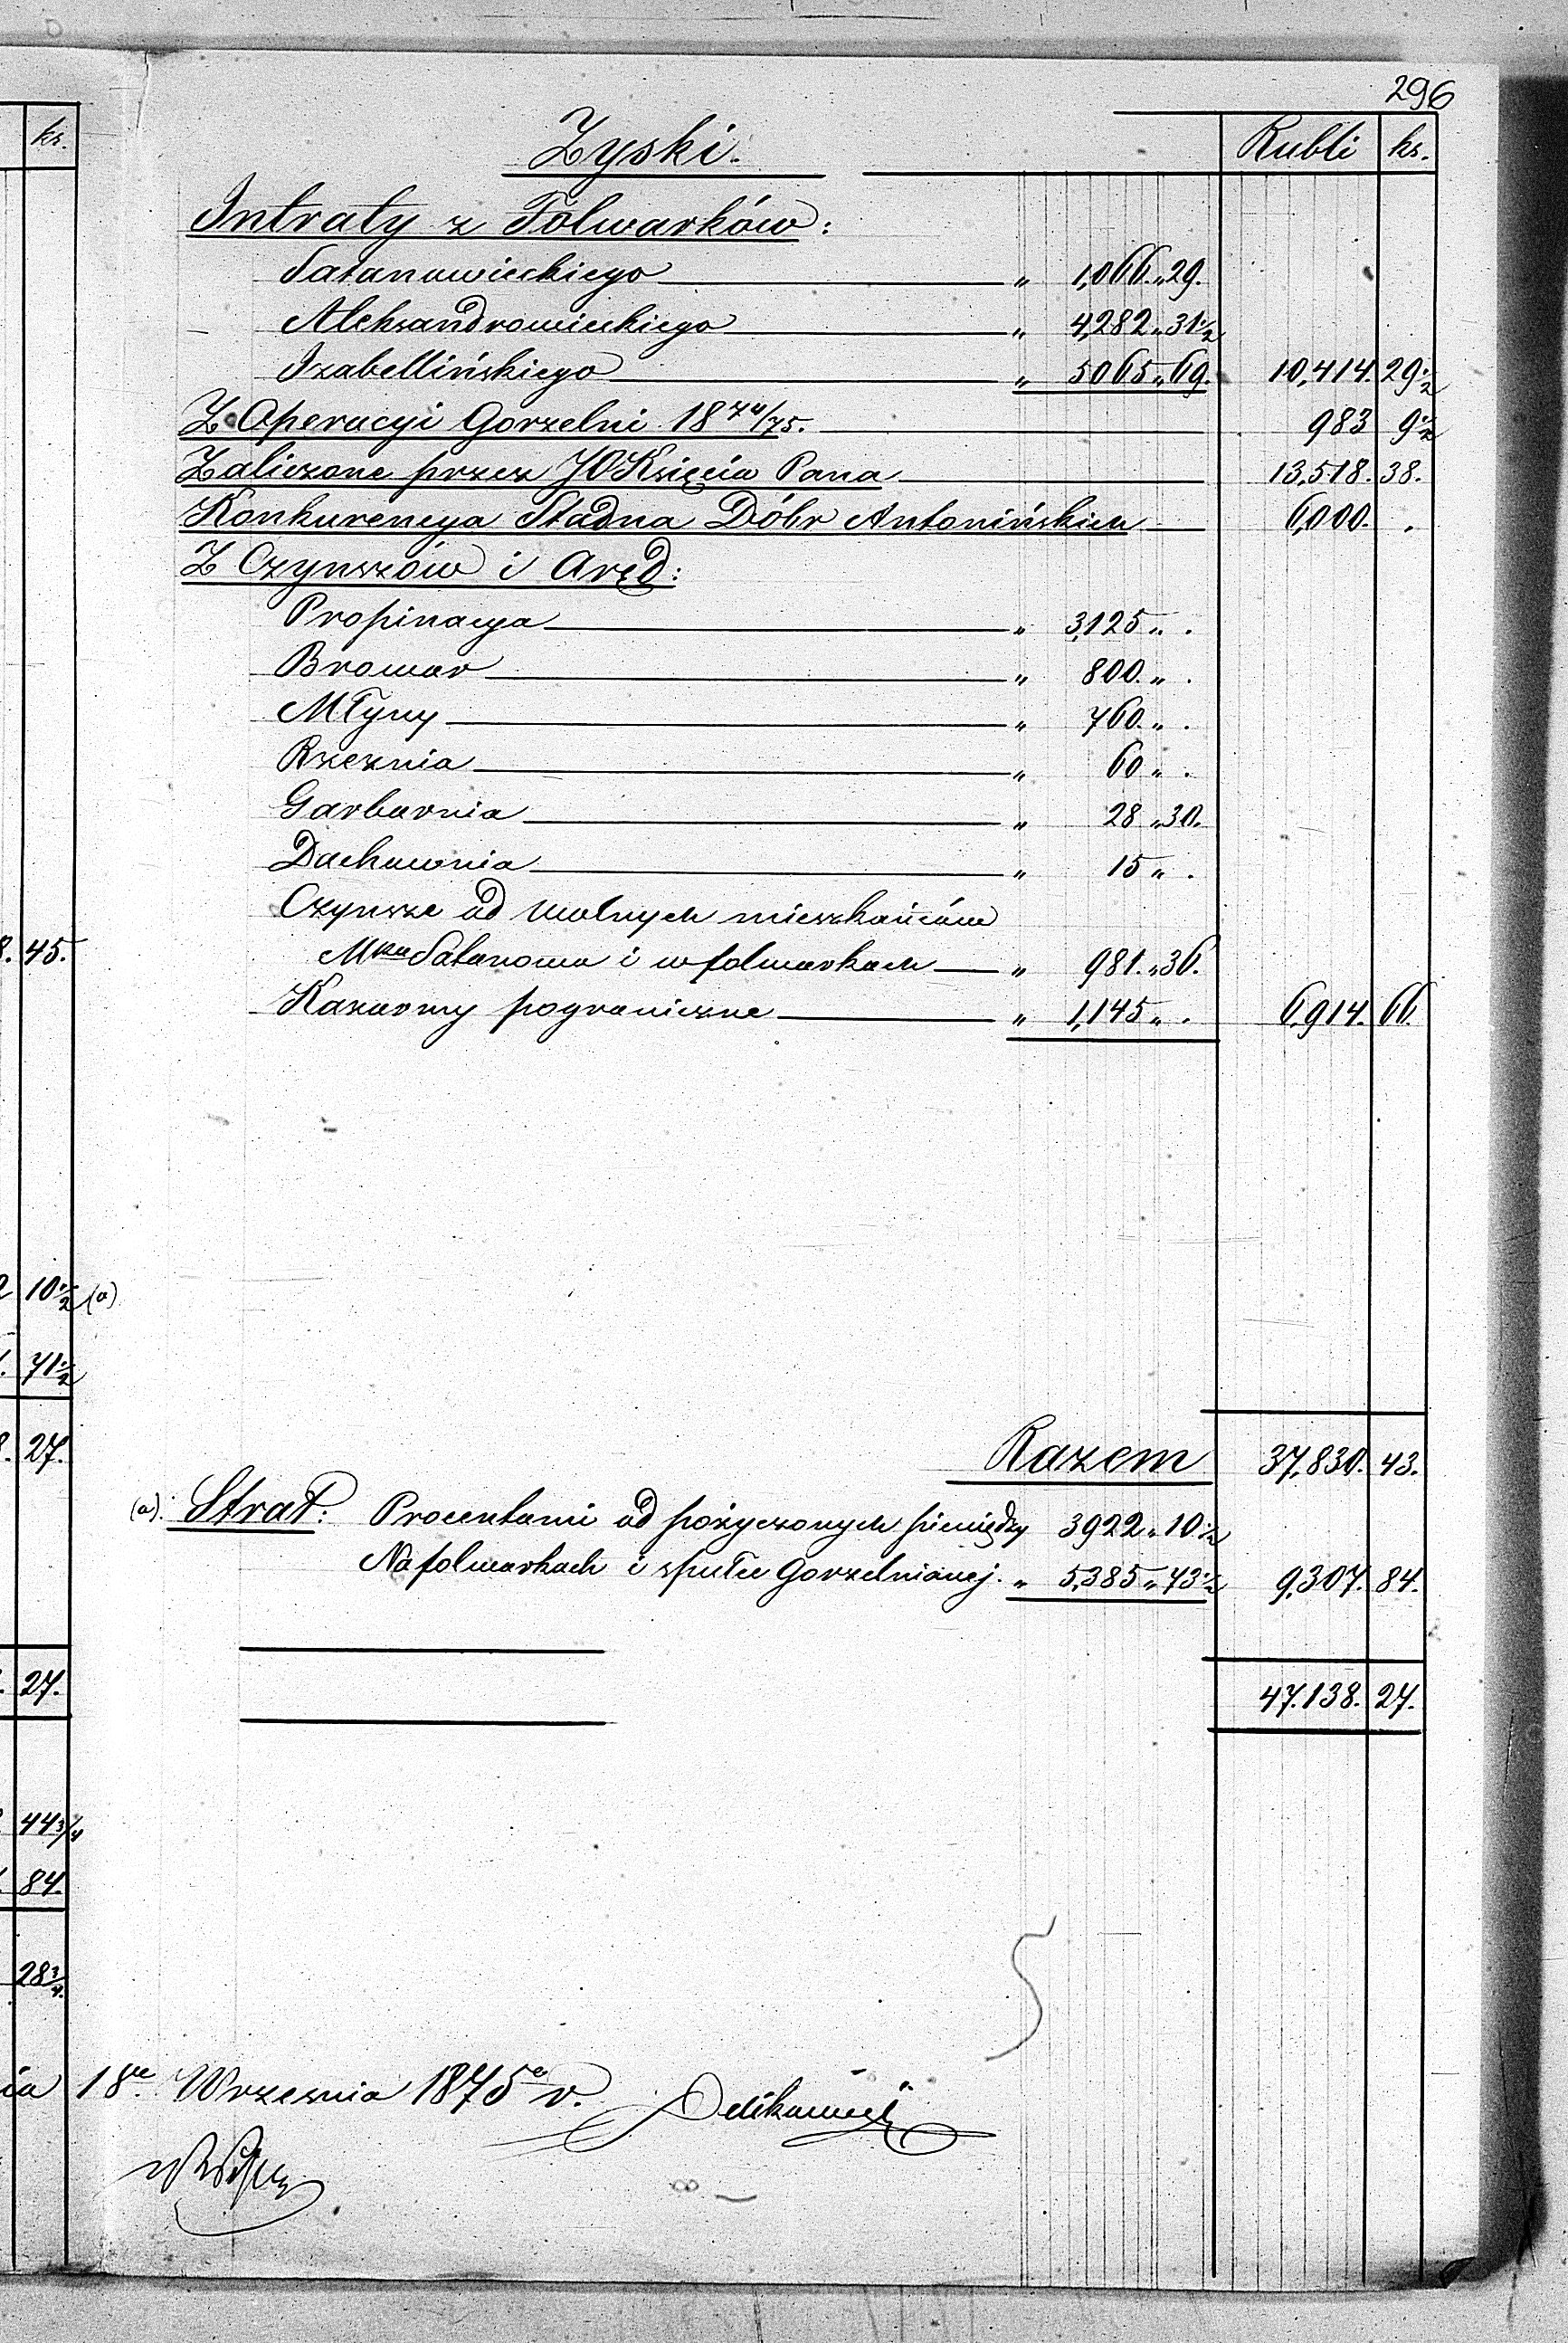 296
ks.
Zyski.
Rubli ks.
Intraty z Folwarków:
Satanowieckiego " 1,066 " 29.
Aleksandrowieckiego " 4,282 " 31 1/2
Izabellińskiego " 5065 " 69. 10,414. 29 1/2
Z Operacyi Gorzelni 1874/75. 983 9 1/2
Zaliczone przez JO Księcia Pana 13,518. 38.
Konkurencya Stadna Dóbr Antonińskich 6,000. .
Z Czynszów i Aręd:
Propinacya " 3,125 " .
Browar " 800. " .
Młyny " 760. " .
Rzeznia " 60 " .
Garbarnia " 28 " 30.
Dachownia " 15 " .
Czynsze od wolnych mieszkańców
Mka Satanowa i w folwarkach " 981. " 36.
Kazarmy pograniczne " 1,145 " . 6,914. 66.
45.
10 1/2 (a)
71 1/2
27.
Razem 37,830. 43.
(a). Strat: Procentami od pożyczonych pieniędzy 3922 " 10 1/2
Na folwarkach i spułce Gorzelnianej. " 5,385 " 73 1/2 9,307. 84.
27.
47.138. 27.
44 3/4
84.
28 3/4
ia 18go Wrzesnia 1875o r.